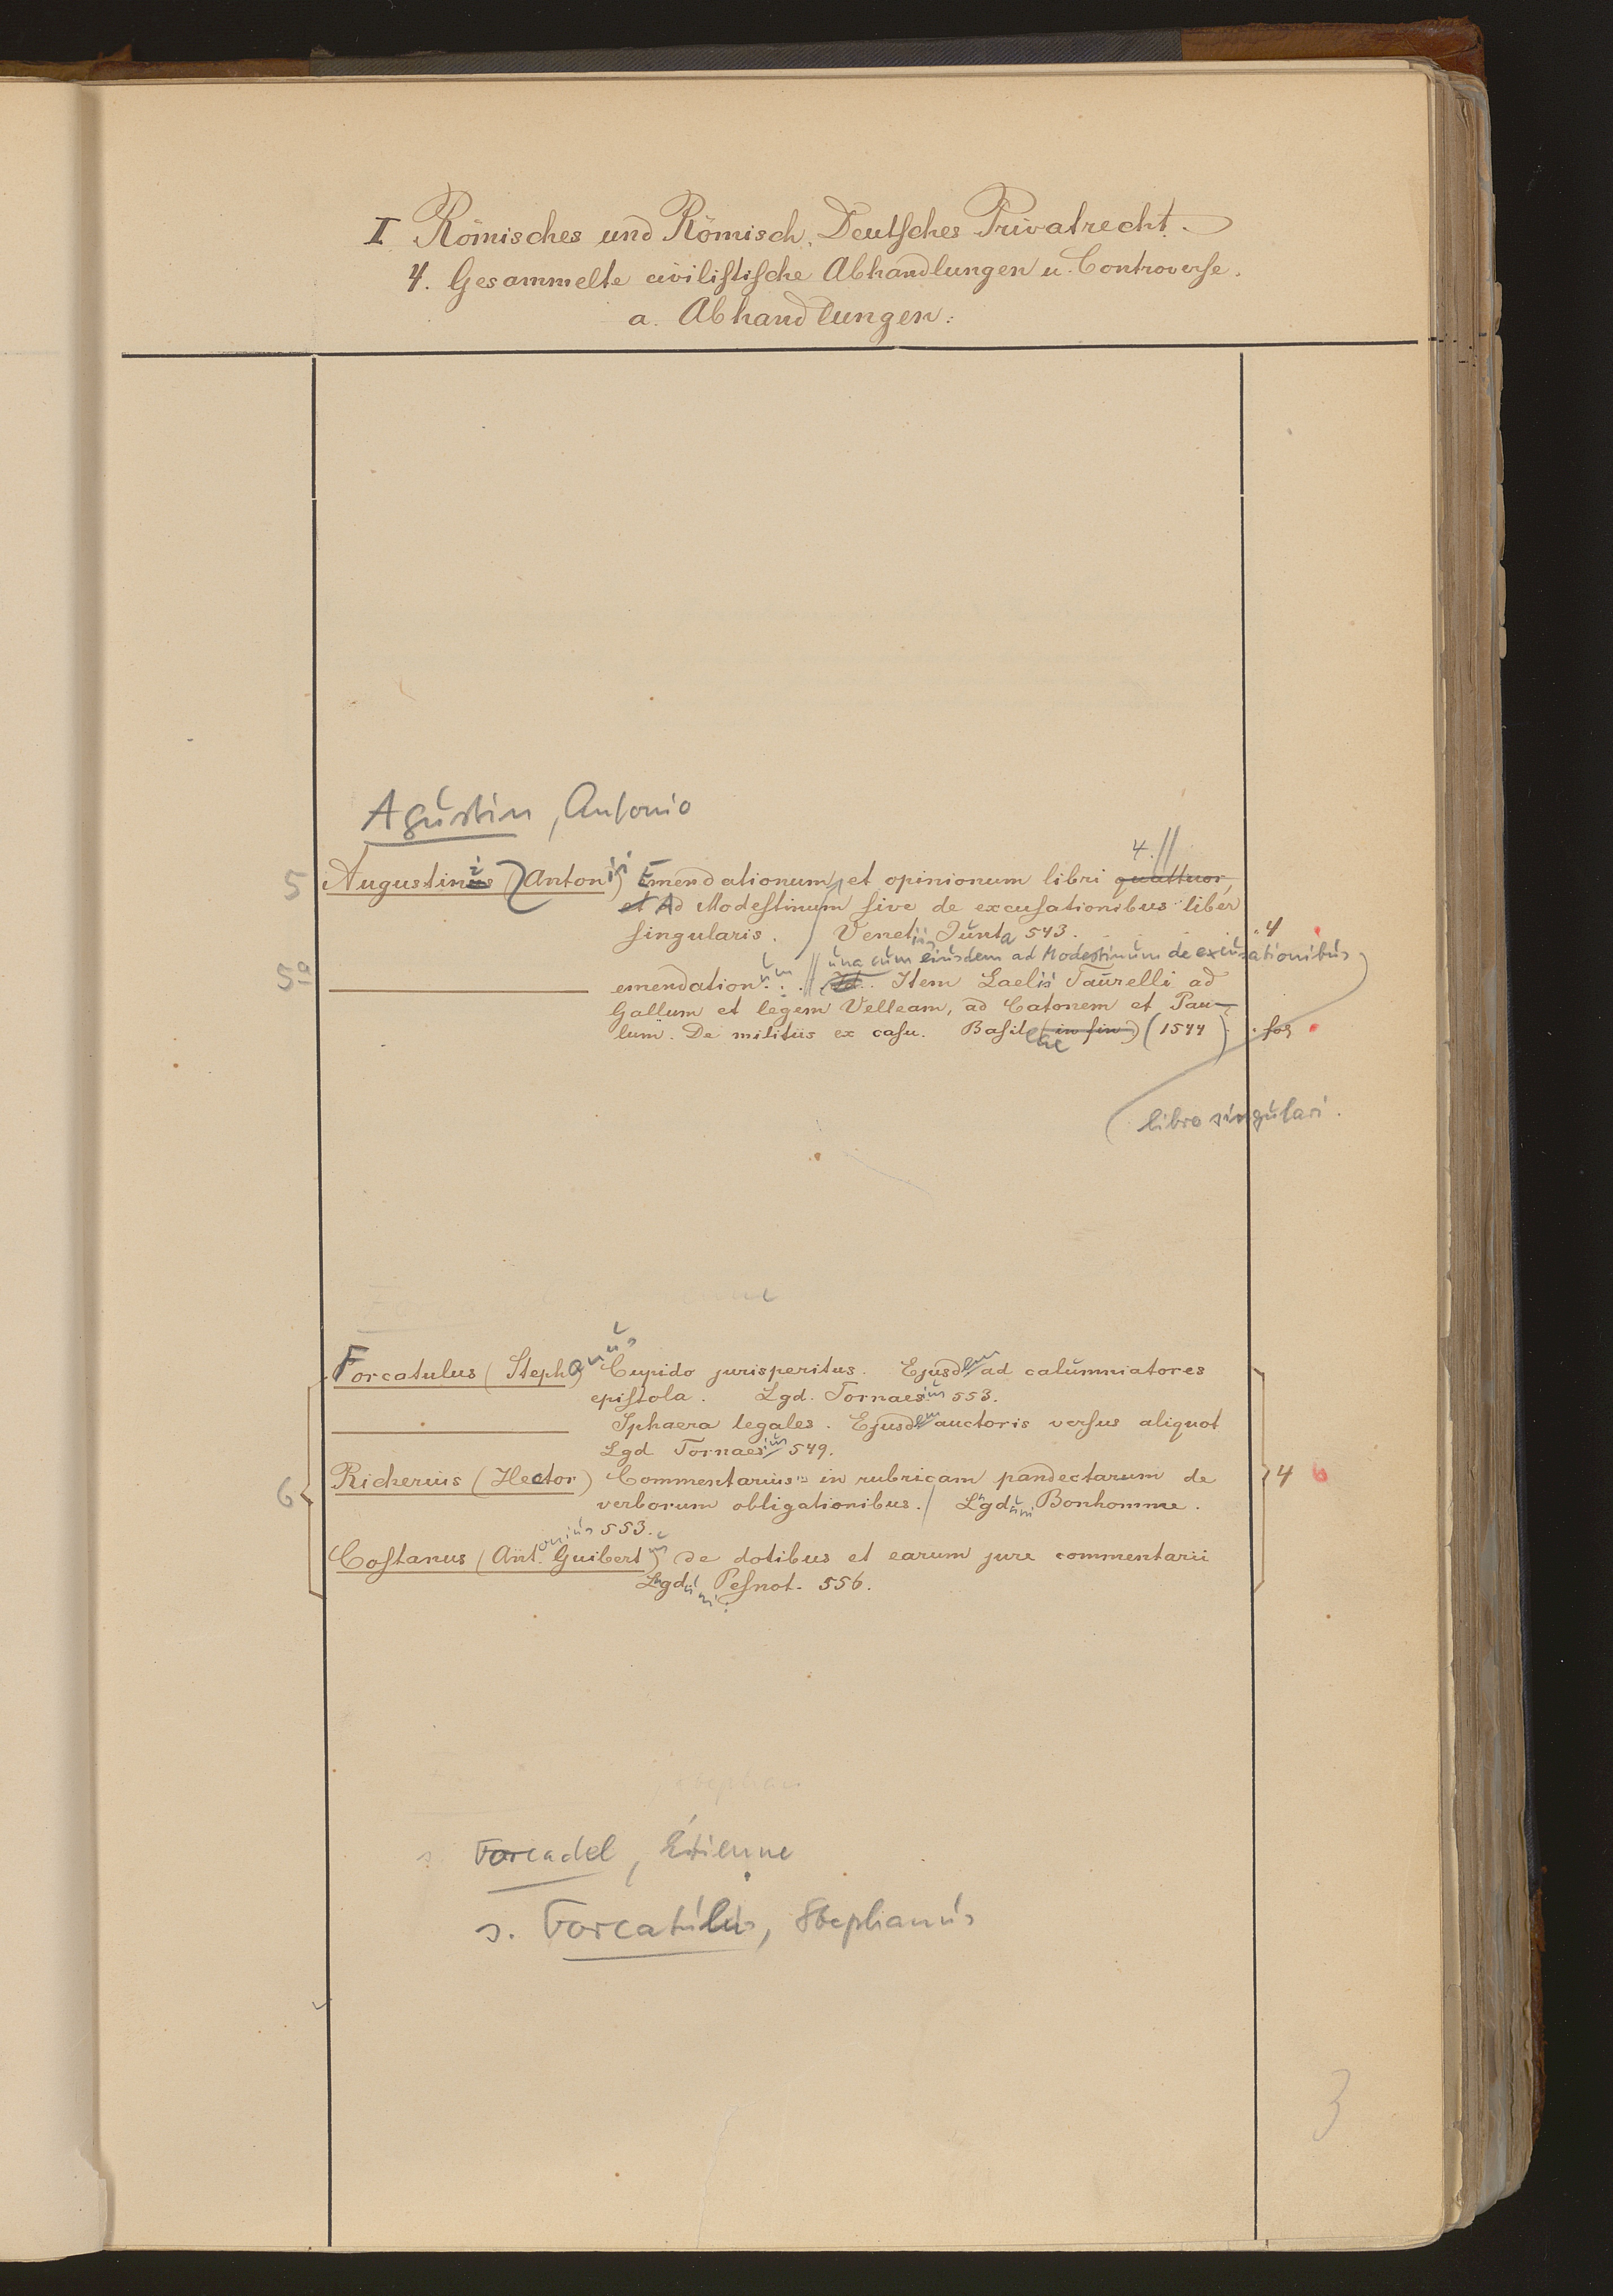 I. Römisches und Römisch. Deutsches Privatrecht.
4. Gesammelte civilistische Abhandlungen u. Controverse.
a. Abhandlungen.
Agustin, Antonio
4. //
5 Augustinus (Antonii) Emendationum et opinionum libri quattuor,
et Ad Modestinum sive de excusationibus liber
singularis. Venetiis Junta 543. 4
una cum eiusdem ad Modestinum de excusationibus
5a ——— emendationum . . . Item Laelii Taurelli ad
Gallum et legem Velleam, ad Catonem et Pau-
lum. De militiis ex casu. Basileae (in fin) (1544) fol
libro singulari.
Forcatulus (Stephanus) Cupido jurisperitus. Ejusdem ad calumniatores
epistola. Lgd. Tornaesius 553.
——— Sphaera legales. Ejusdem auctoris versus aliquot
Lgd Tornaesius 549.
6 Richerius (Hector) Commentarius in rubricam pandectarum de 4 6
verborum obligationibus. Lugduni Bonhomme.
553.
Costanus (Antonius Guibertus) de dotibus et earum jure commentarii
Lugduni Pesnot. 556.
Stephan
s. Forcadel, Étienne
s. Forcatulus, Stephanus
3